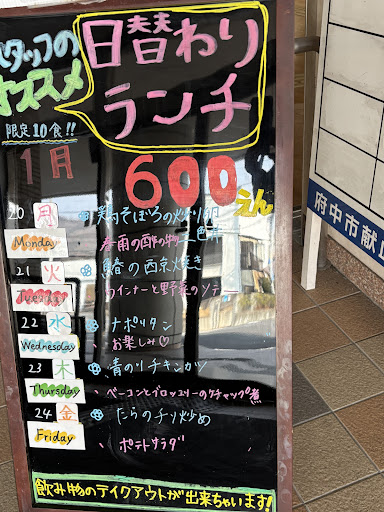 スタッフの
オススメ
日替わり
ランチ
限定10食!!
1月
600えん
20 月 鶏そぼろの炒り卵
二色丼
Monday 春雨の酢の物
21 火 鰆の西京焼き
Tuesday ウインナーと野菜のソテー
22 水 ナポリタン
Wednesday お楽しみ♡
23 木 青のりチキンカツ
Thursday ベーコンとブロッコリーのケチャップ煮
24 金 たらのチリ炒め
Friday ポテトサラダ
飲み物のテイクアウトが出来ちゃいます!
府中市献血